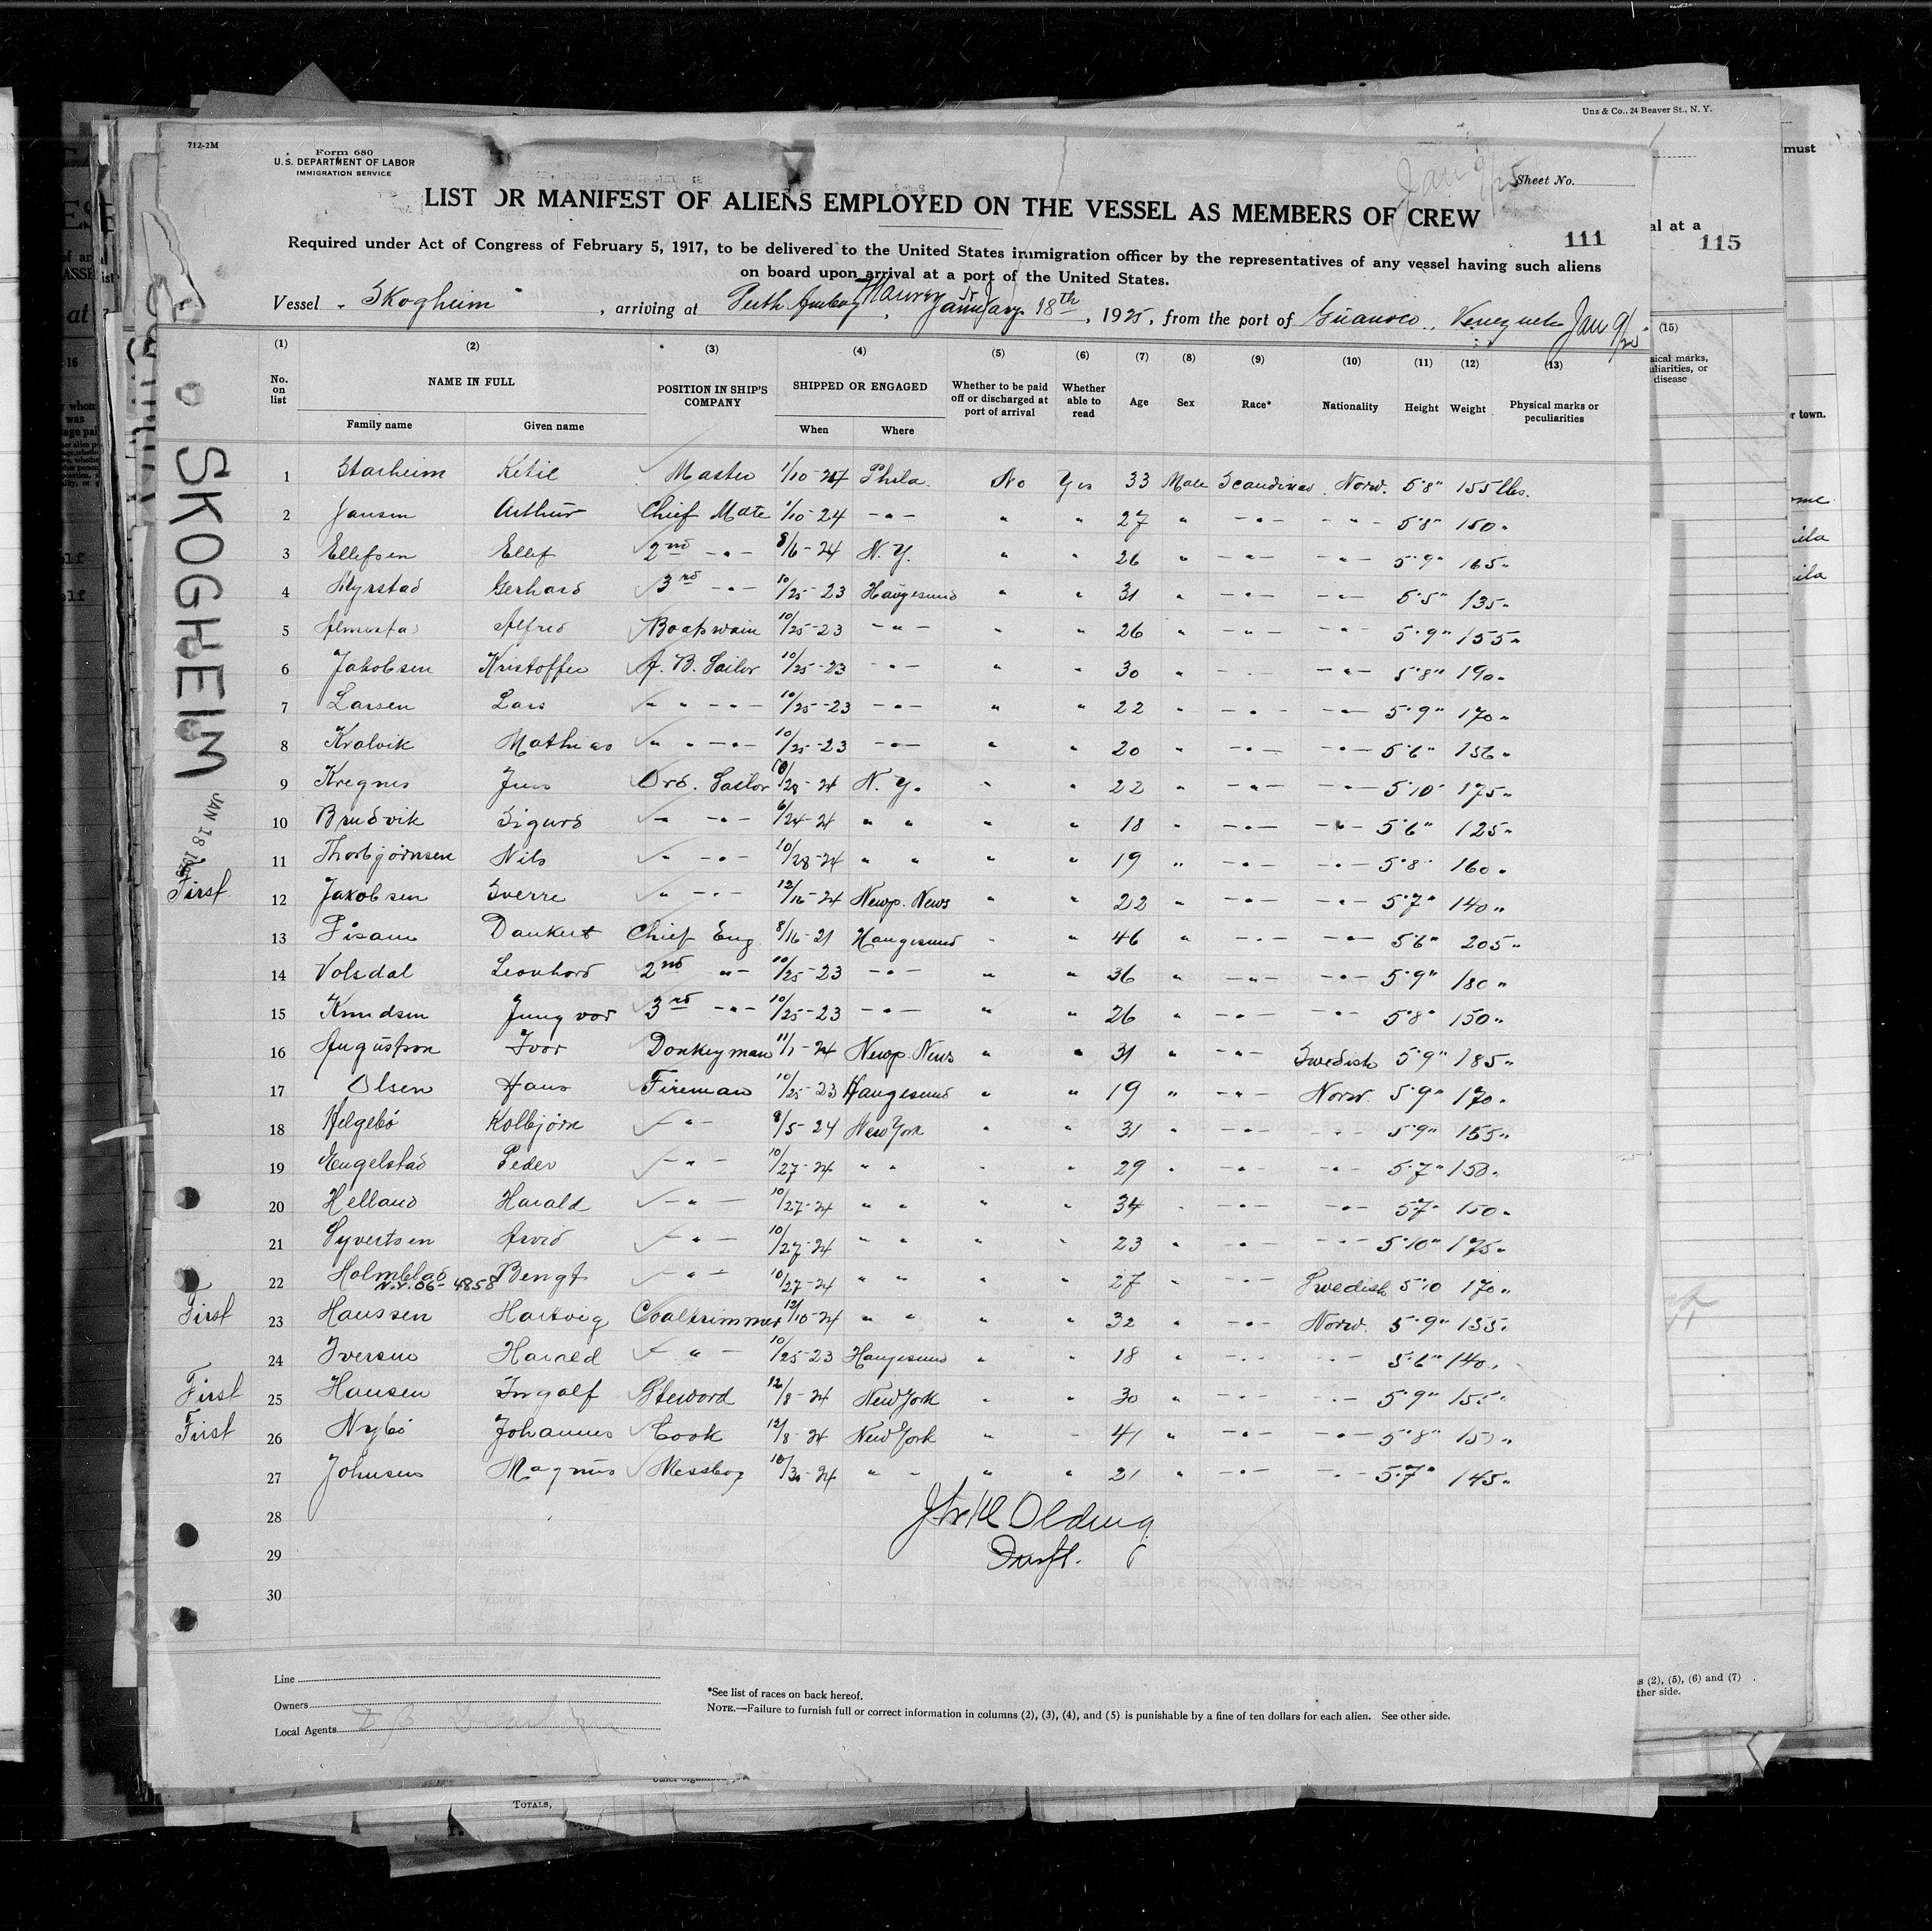 Unz & Co., 24 Beaver St., N. Y.
712-2M
Form 680
U. S. DEPARTMENT OF LABOR
IMMIGRATION SERVICE
Jan 9/25
Sheet No.
LIST OR MANIFEST OF ALIENS EMPLOYED ON THE VESSEL AS MEMBERS OF CREW
111
115
Required under Act of Congress of February 5, 1917, to be delivered to the United States immigration officer by the representatives of any vessel having such aliens
on board upon arrival at a port of the United States.
Vessel "Skogheim", arriving at Perth Amboy, January 18th, 1925, from the port of Guanoco, Venezuela Jan 9/25
(1) (2) (3) (4) (5) (6) (7) (8) (9) (10) (11) (12) (13)
No. on list NAME IN FULL POSITION IN SHIP'S COMPANY SHIPPED OR ENGAGED Whether to be paid off or discharged at port of arrival Whether able to read Age Sex Race* Nationality Height Weight Physical marks or peculiarities
Family name Given name When Where
SKOGHEIM
JAN 18 1925
1 Starheim Ketil Master 1/10-24 Phila. No Yes 33 Male Scandinav. Norw. 5'8" 155 lbs.
2 Jansen Arthur Chief Mate 1/10-24 -"- " " 27 " -"- -"- 5'8" 150 "
3 Ellefsen Ellef 2nd -"- 8/6-24 N. Y. " " 26 " -"- -"- 5'9" 165 "
4 Myrstad Gerhard 3rd -"- 10/25-23 Haugesund " " 31 " -"- -"- 5'5" 135 "
5 Alfred Boatswain 10/25-23 -"- " " 26 " -"- -"- 5'9" 155 "
6 Jakobsen Kristoffer A. B. Sailor 10/25-23 -"- " " 30 " -"- -"- 5'8" 190 "
7 Larsen Lars " " -"- 10/25-23 -"- " " 22 " -"- -"- 5'9" 170 "
8 Kralvik Mathias " " -"- 10/25-23 -"- " " 20 " -"- -"- 5'6" 156 "
9 Jens Ord. Sailor 10/28-24 N. Y. " " 22 " -"- -"- 5'10" 175 "
10 Brudvik Sigurd -"- -"- 6/24-24 " " " " 18 " -"- -"- 5'6" 125 "
11 Thorbjørnsen Nils " -"- 10/28-24 " " " " 19 " -"- -"- 5'8" 160 "
First 12 Jakobsen Sverre " -"- 12/16-24 Newp. News " " 22 " -"- -"- 5'7" 140 "
13 Dankert Chief Eng. 8/16-21 Haugesund " " 46 " -"- -"- 5'6" 205 "
14 Volsdal Leonhard 2nd "- 10/25-23 -"- " " 36 " -"- -"- 5'9" 180 "
15 Knudsen Jungvar 3rd -"- 10/25-23 -"- " " 26 " -"- -"- 5'8" 150 "
16 Augustson Ivar Donkeyman 11/1-24 Newp. News " " 31 " -"- Swedish 5'9" 185 "
17 Olsen Hans Fireman 10/25-23 Haugesund " " 19 " -"- Norw. 5'9" 170 "
18 Helgebö Kolbjørn -"- 8/5-24 New York " " 31 " -"- -"- 5'9" 155 "
19 Engelstad Peder -"- 10/27-24 " " " " 29 " -"- -"- 5'7" 150 "
20 Helland Harald -"- 10/27-24 " " " " 34 " -"- -"- 5'7" 150 "
21 Syvertsen Arvid -"- 10/27-24 " " " " 23 " -"- -"- 5'10" 175 "
22 Holmblad Bengt -"- 10/27-24 " " " " 27 " -"- Swedish 5'10 170 "
N.Y. 06-4858
First 23 Hanssen Hartvig Coaltrimmer 12/10-24 " " " " 32 " -"- Norw. 5'9" 155 "
24 Iversen Harald -"- 10/25-23 Haugesund " " 18 " -"- -"- 5'6" 140 "
First 25 Hansen Ingolf Steward 12/8-24 New York " " 30 " -"- -"- 5'9" 155 "
First 26 Nybö Johannes Cook 12/8-24 New York " - 41 " -"- -"- 5'8" 150 "
27 Johnsen Magnus Messboy 10/30-24 " " " " 21 " -"- -"- 5'7" 145 "
28
29
30
Line
Owners
Local Agents
*See list of races on back hereof.
NOTE.—Failure to furnish full or correct information in columns (2), (3), (4), and (5) is punishable by a fine of ten dollars for each alien. See other side.
TOTALS,